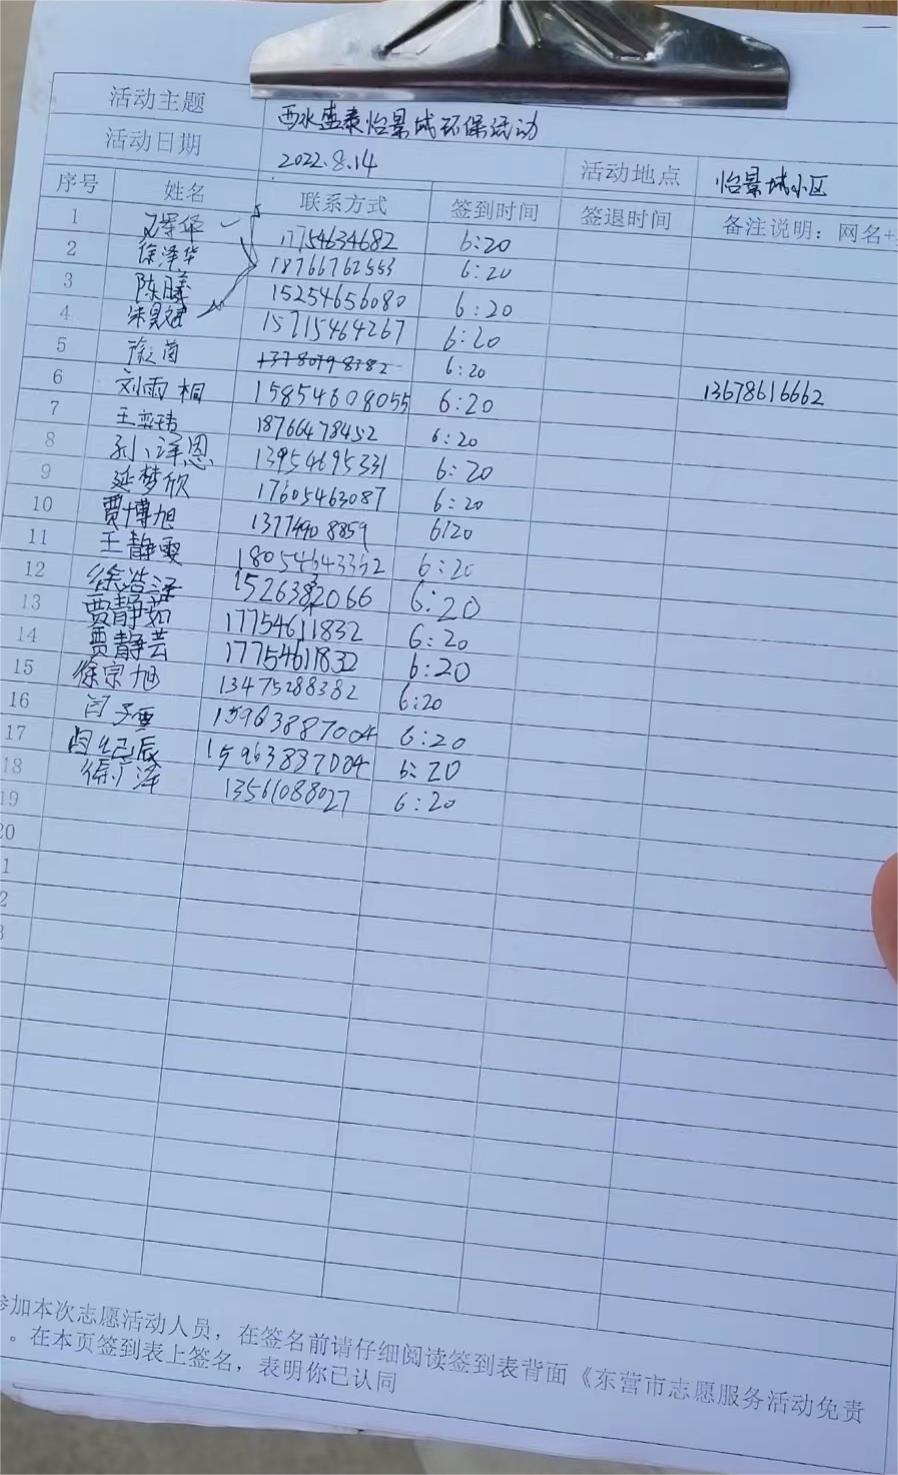 活动主题 西水盛泰怡景城环保活动
活动日期 2022.8.14 活动地点 怡景城小区
序号 姓名 联系方式 签到时间 签退时间 备注说明：网名+
1 17754634682 6:20
2 徐泽华 18766762553 6:20
3 陈曦 15254656080 6:20
4 朱昊斌 15715464267 6:20
5 徐茵 13780798382 6:20
6 刘雨桐 15854608055 6:20 13678616662
7 王奕琦 18766478452 6:20
8 孙泽恩 13954695331 6:20
9 延梦欣 17605463087 6:20
10 贾博旭 6:20
11 王静雯 18054643362 6:20
12 徐浩泽 6:20
13 贾静茹 17754611832 6:20
14 贾静芸 17754611832 6:20
15 徐宗旭 13475288382 6:20
16 闫子重 15963887004 6:20
17 闫纪辰 15963887004 6:20
18 徐广泽 13561088027 6:20
19
20
1
2
3
参加本次志愿活动人员，在签名前请仔细阅读签到表背面《东营市志愿服务活动免责
。在本页签到表上签名，表明你已认同